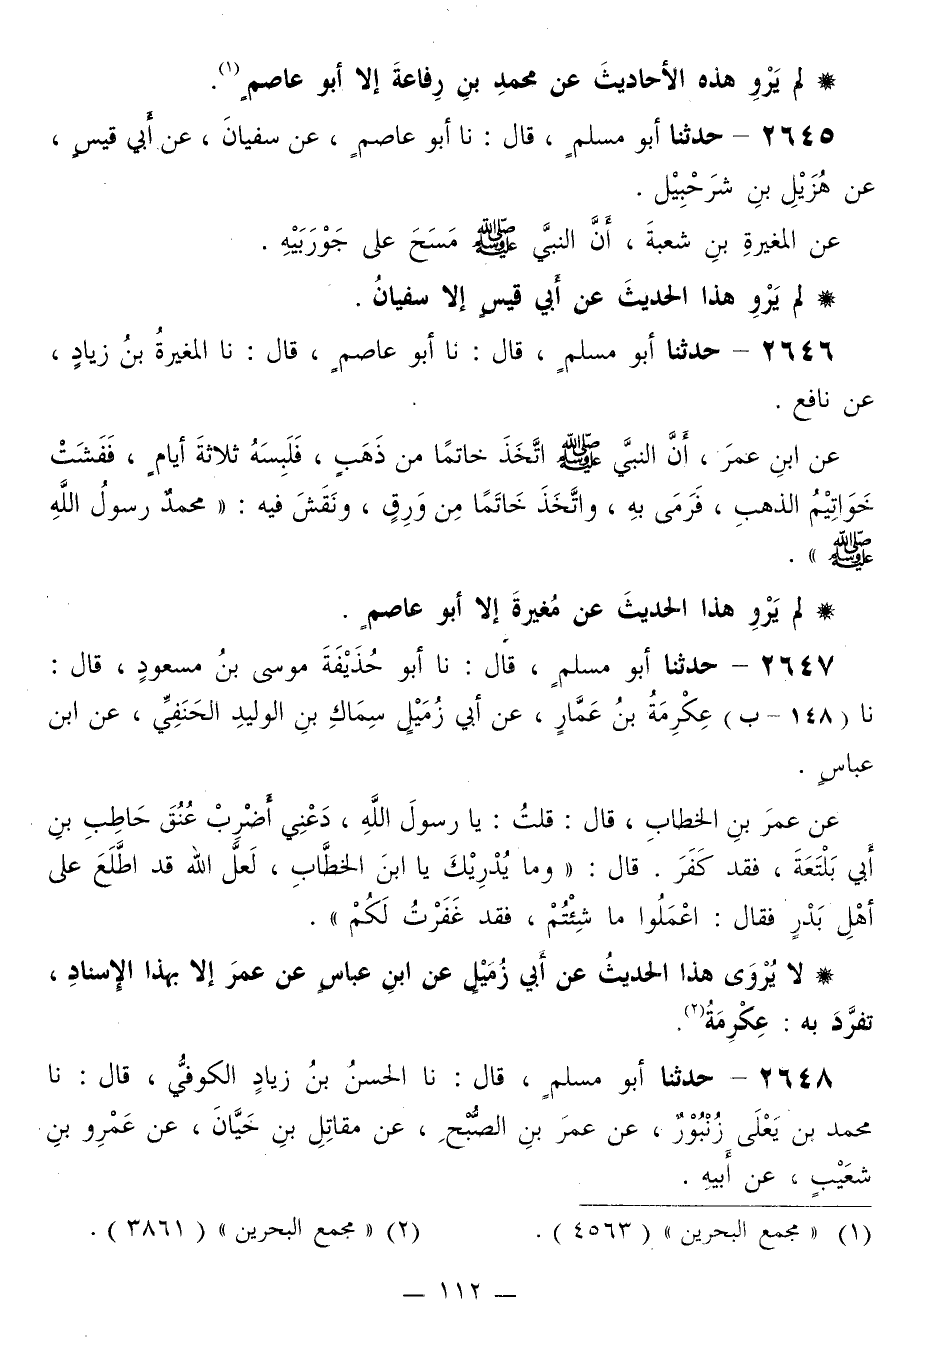 * لم يَرْوِ هذه الأحاديثَ عن محمدِ بنِ رِفاعةَ إلا أبو عاصمٍ(١).
٢٦٤٥ – حدثنا أبو مسلمٍ ، قال : نا أبو عاصمٍ ، عن سفيانَ ، عن أَبي قيسٍ ،
عن هُزَيْلِ بنِ شَرَحْبِيْل .
عن المغيرةِ بنِ شعبةَ ، أَنَّ النبيَّ ﷺ مَسَحَ على جَوْرَبَيْهِ .
* لم يَرْوِ هذا الحديثَ عن أَبي قيسٍ إلا سفيانُ .
٢٦٤٦ – حدثنا أبو مسلمٍ ، قال : نا أبو عاصمٍ ، قال : نا المغيرةُ بنُ زيادٍ ،
عن نافع .
عن ابنِ عمرَ ، أَنَّ النبيَّ ﷺ اتَّخَذَ خاتمًا من ذَهَبٍ ، فَلَبِسَهُ ثلاثةَ أيامٍ ، فَفَشَتْ
خَوَاتِيْمُ الذهبِ ، فَرَمَى بهِ ، واتَّخَذَ خَاتَمًا مِن وَرِقٍ ، ونَقَشَ فيه : « محمدٌ رسولُ اللَّهِ
ﷺ » .
* لم يَرْوِ هذا الحديثَ عن مُغيرةَ إلا أبو عاصمٍ .
٢٦٤٧ – حدثنا أبو مسلمٍ ، قال : نا أبو حُذَيْفَةَ موسى بنُ مسعودٍ ، قال :
نا ( ١٤٨ – ب ) عِكْرِمَةُ بنُ عَمَّارٍ ، عن أبي زُمَيْلٍ سِمَاكِ بنِ الوليدِ الحَنَفِيِّ ، عن ابن
عباسٍ .
عن عمرَ بنِ الخطابِ ، قال : قلتُ : يا رسولَ اللَّهِ ، دَعْنِي أَضْرِبْ عُنُقَ حَاطِبِ بنِ
أَبي بَلْتَعَةَ ، فقد كَفَرَ . قال : « وما يُدْرِيْكَ يا ابنَ الخطَّابِ ، لَعلَّ الله قد اطَّلَعَ على
أهْلِ بَدْرٍ فقال : اعْمَلُوا ما شِئْتُمْ ، فقد غَفَرْتُ لَكُمْ » .
* لا يُرْوَى هذا الحديثُ عن أَبي زُمَيْلٍ عن ابنِ عباسٍ عن عمرَ إلا بهذا الإِسنادِ ،
تفرَّدَ به : عِكْرِمَةُ(٢).
٢٦٤٨ – حدثنا أبو مسلمٍ ، قال : نا الحسنُ بنُ زيادٍ الكوفيُّ ، قال : نا
محمد بن يَعْلَى زُنْبُوْرٌ ، عن عمرَ بنِ الصُّبْحِ ، عن مقاتلِ بنِ حَيَّانَ ، عن عَمْرِو بنِ
شعَيْبٍ ، عن أَبيهِ .
(١) « مجمع البحرين » ( ٤٥٦٣ ) . (٢) « مجمع البحرين » ( ٣٨٦١ ) .
— ١١٢ —